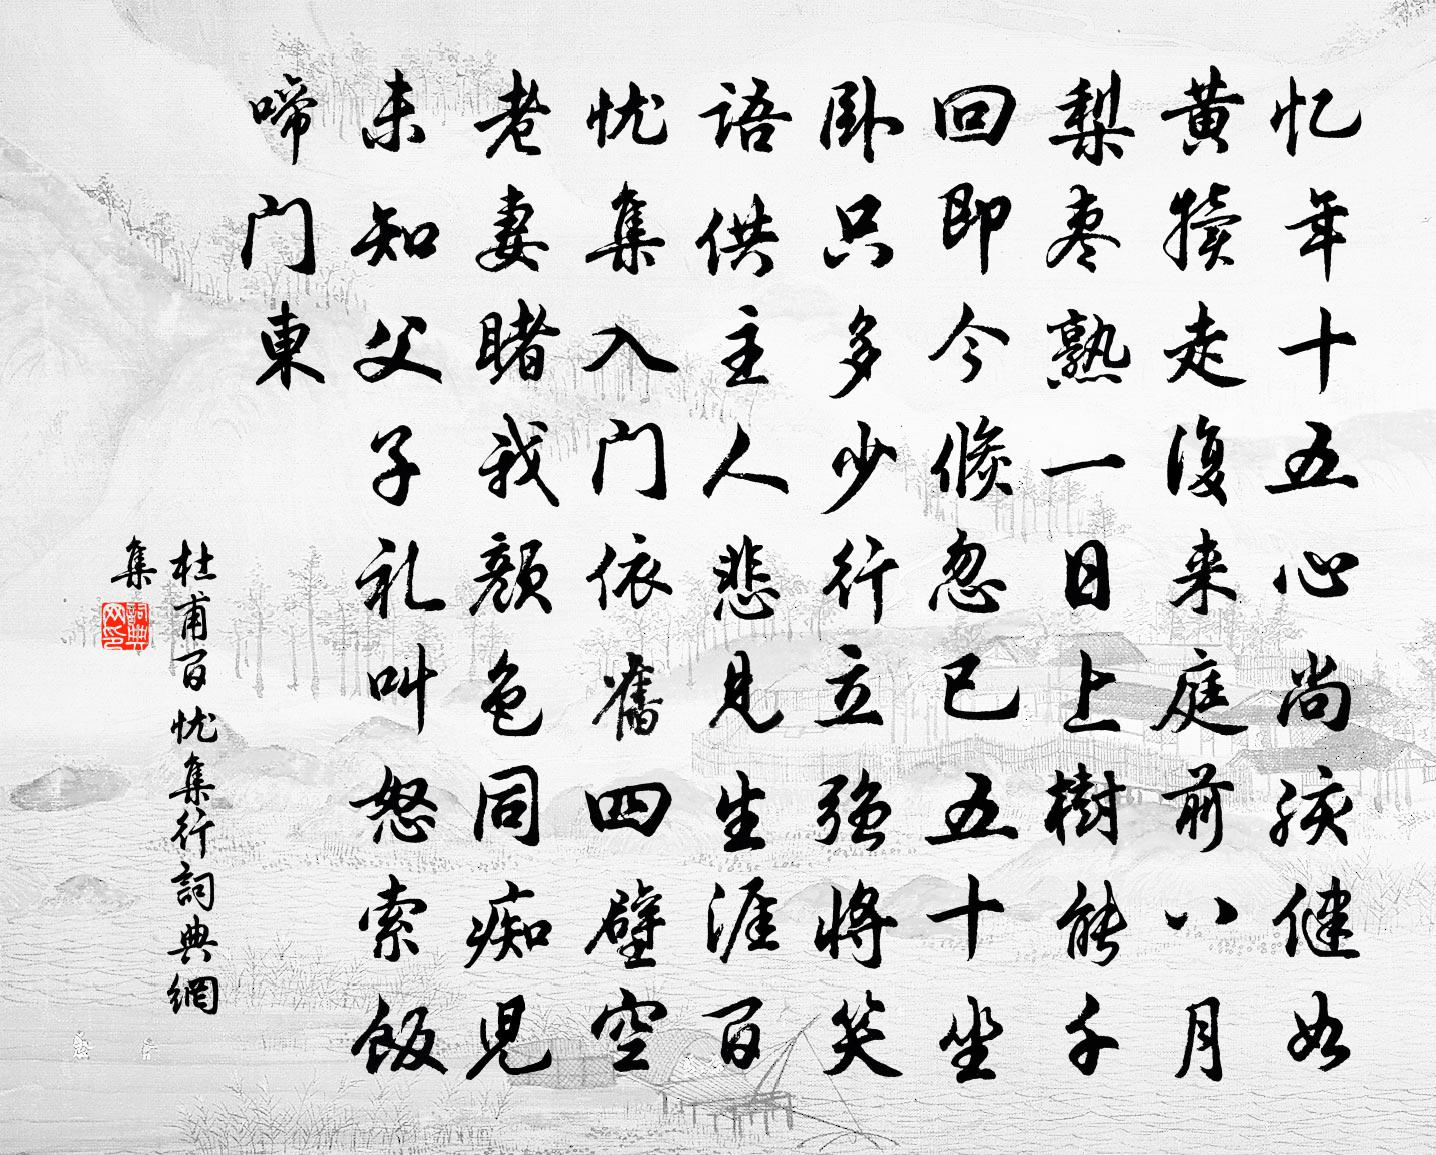 忆年十五心尚孩健如
黄犊走復来庭前八月
梨枣熟一日上樹能千
回即今倏忽已五十坐
卧只多少行立强將笑
语供主人悲見生涯百
忧集入门依舊四壁空
老妻睹我颜色同痴児
未知父子礼叫怒索飯
啼门東
杜甫百忧集行詞典網
集
詞典网印